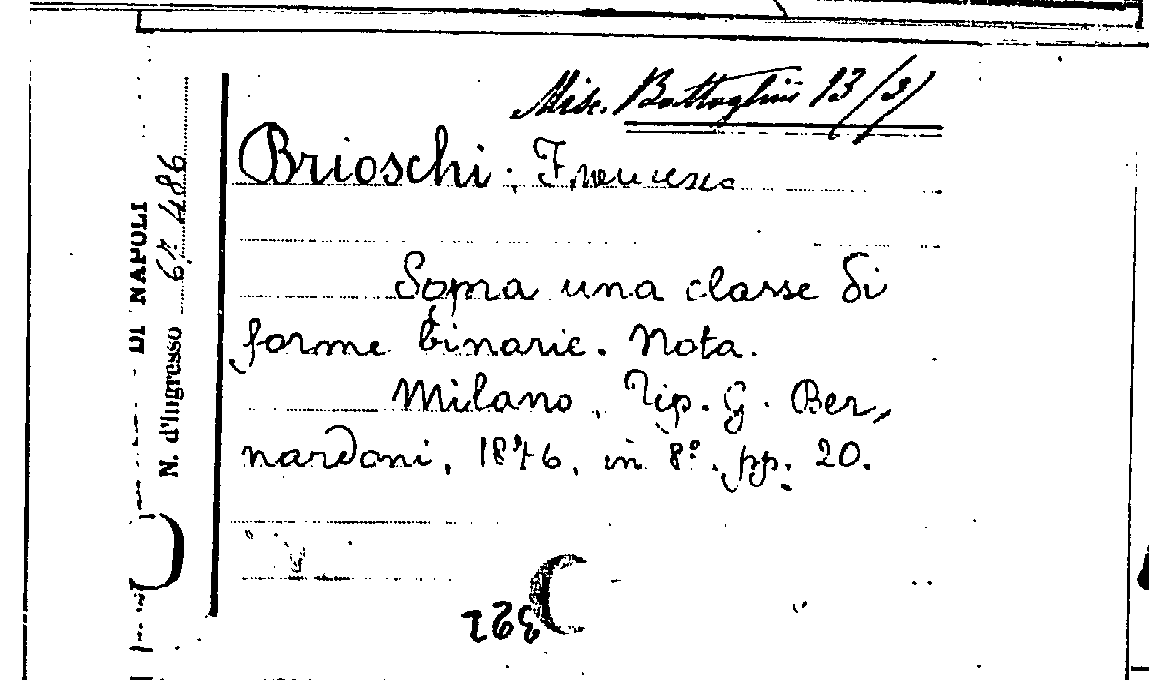 Misc. Battaglini 13/3/
Brioschi, Francesco
Sopra una classe di
forme binarie. Nota.
Milano, Tip. G. Ber,
nardoni, 1876, in 8º. pp. 20.
DI NAPOLI
N. d'Ingresso